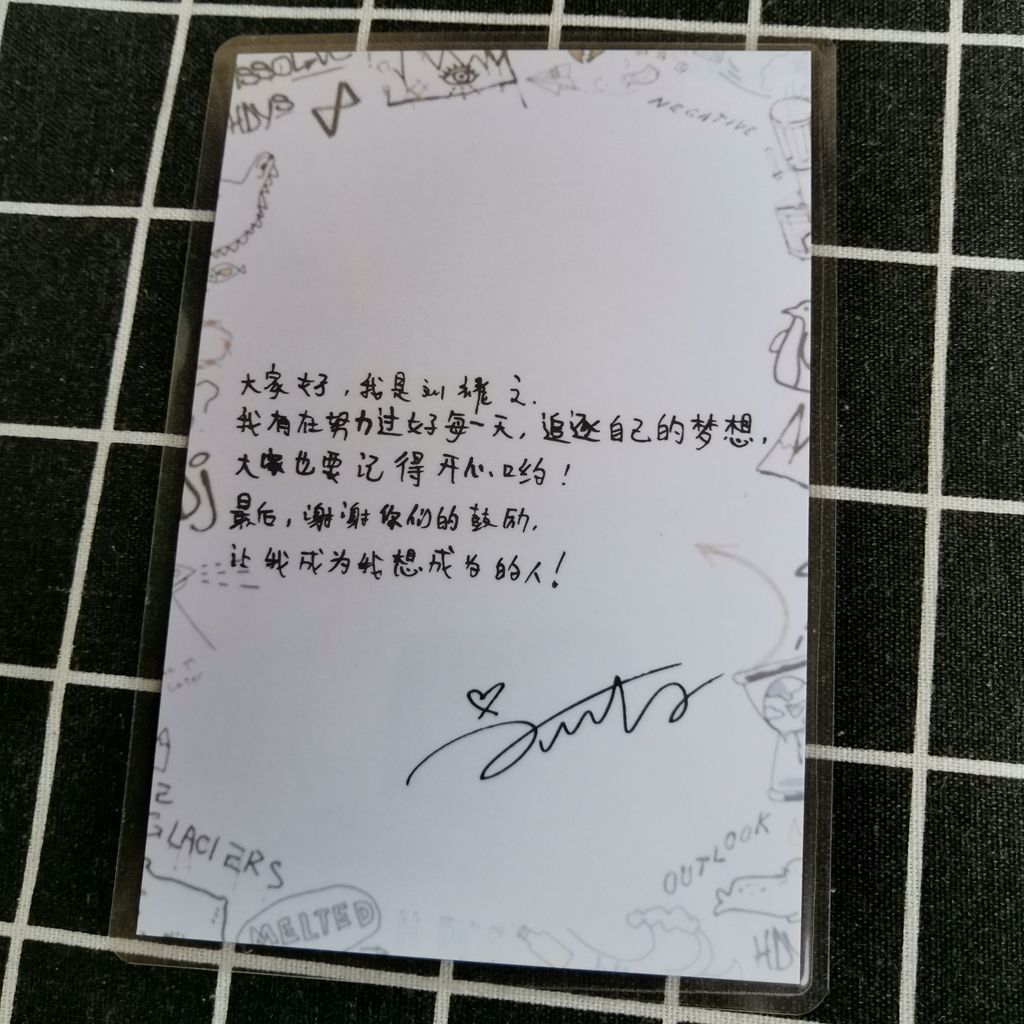 NEGATIVE
大家好，我是刘耀文.
我有在努力过好每一天，追逐自己的梦想，
大家也要记得开心哟！
最后，谢谢你们的鼓励.
让我成为我想成为的人！
GLACIERS
OUTLOOK
MELTED
HD